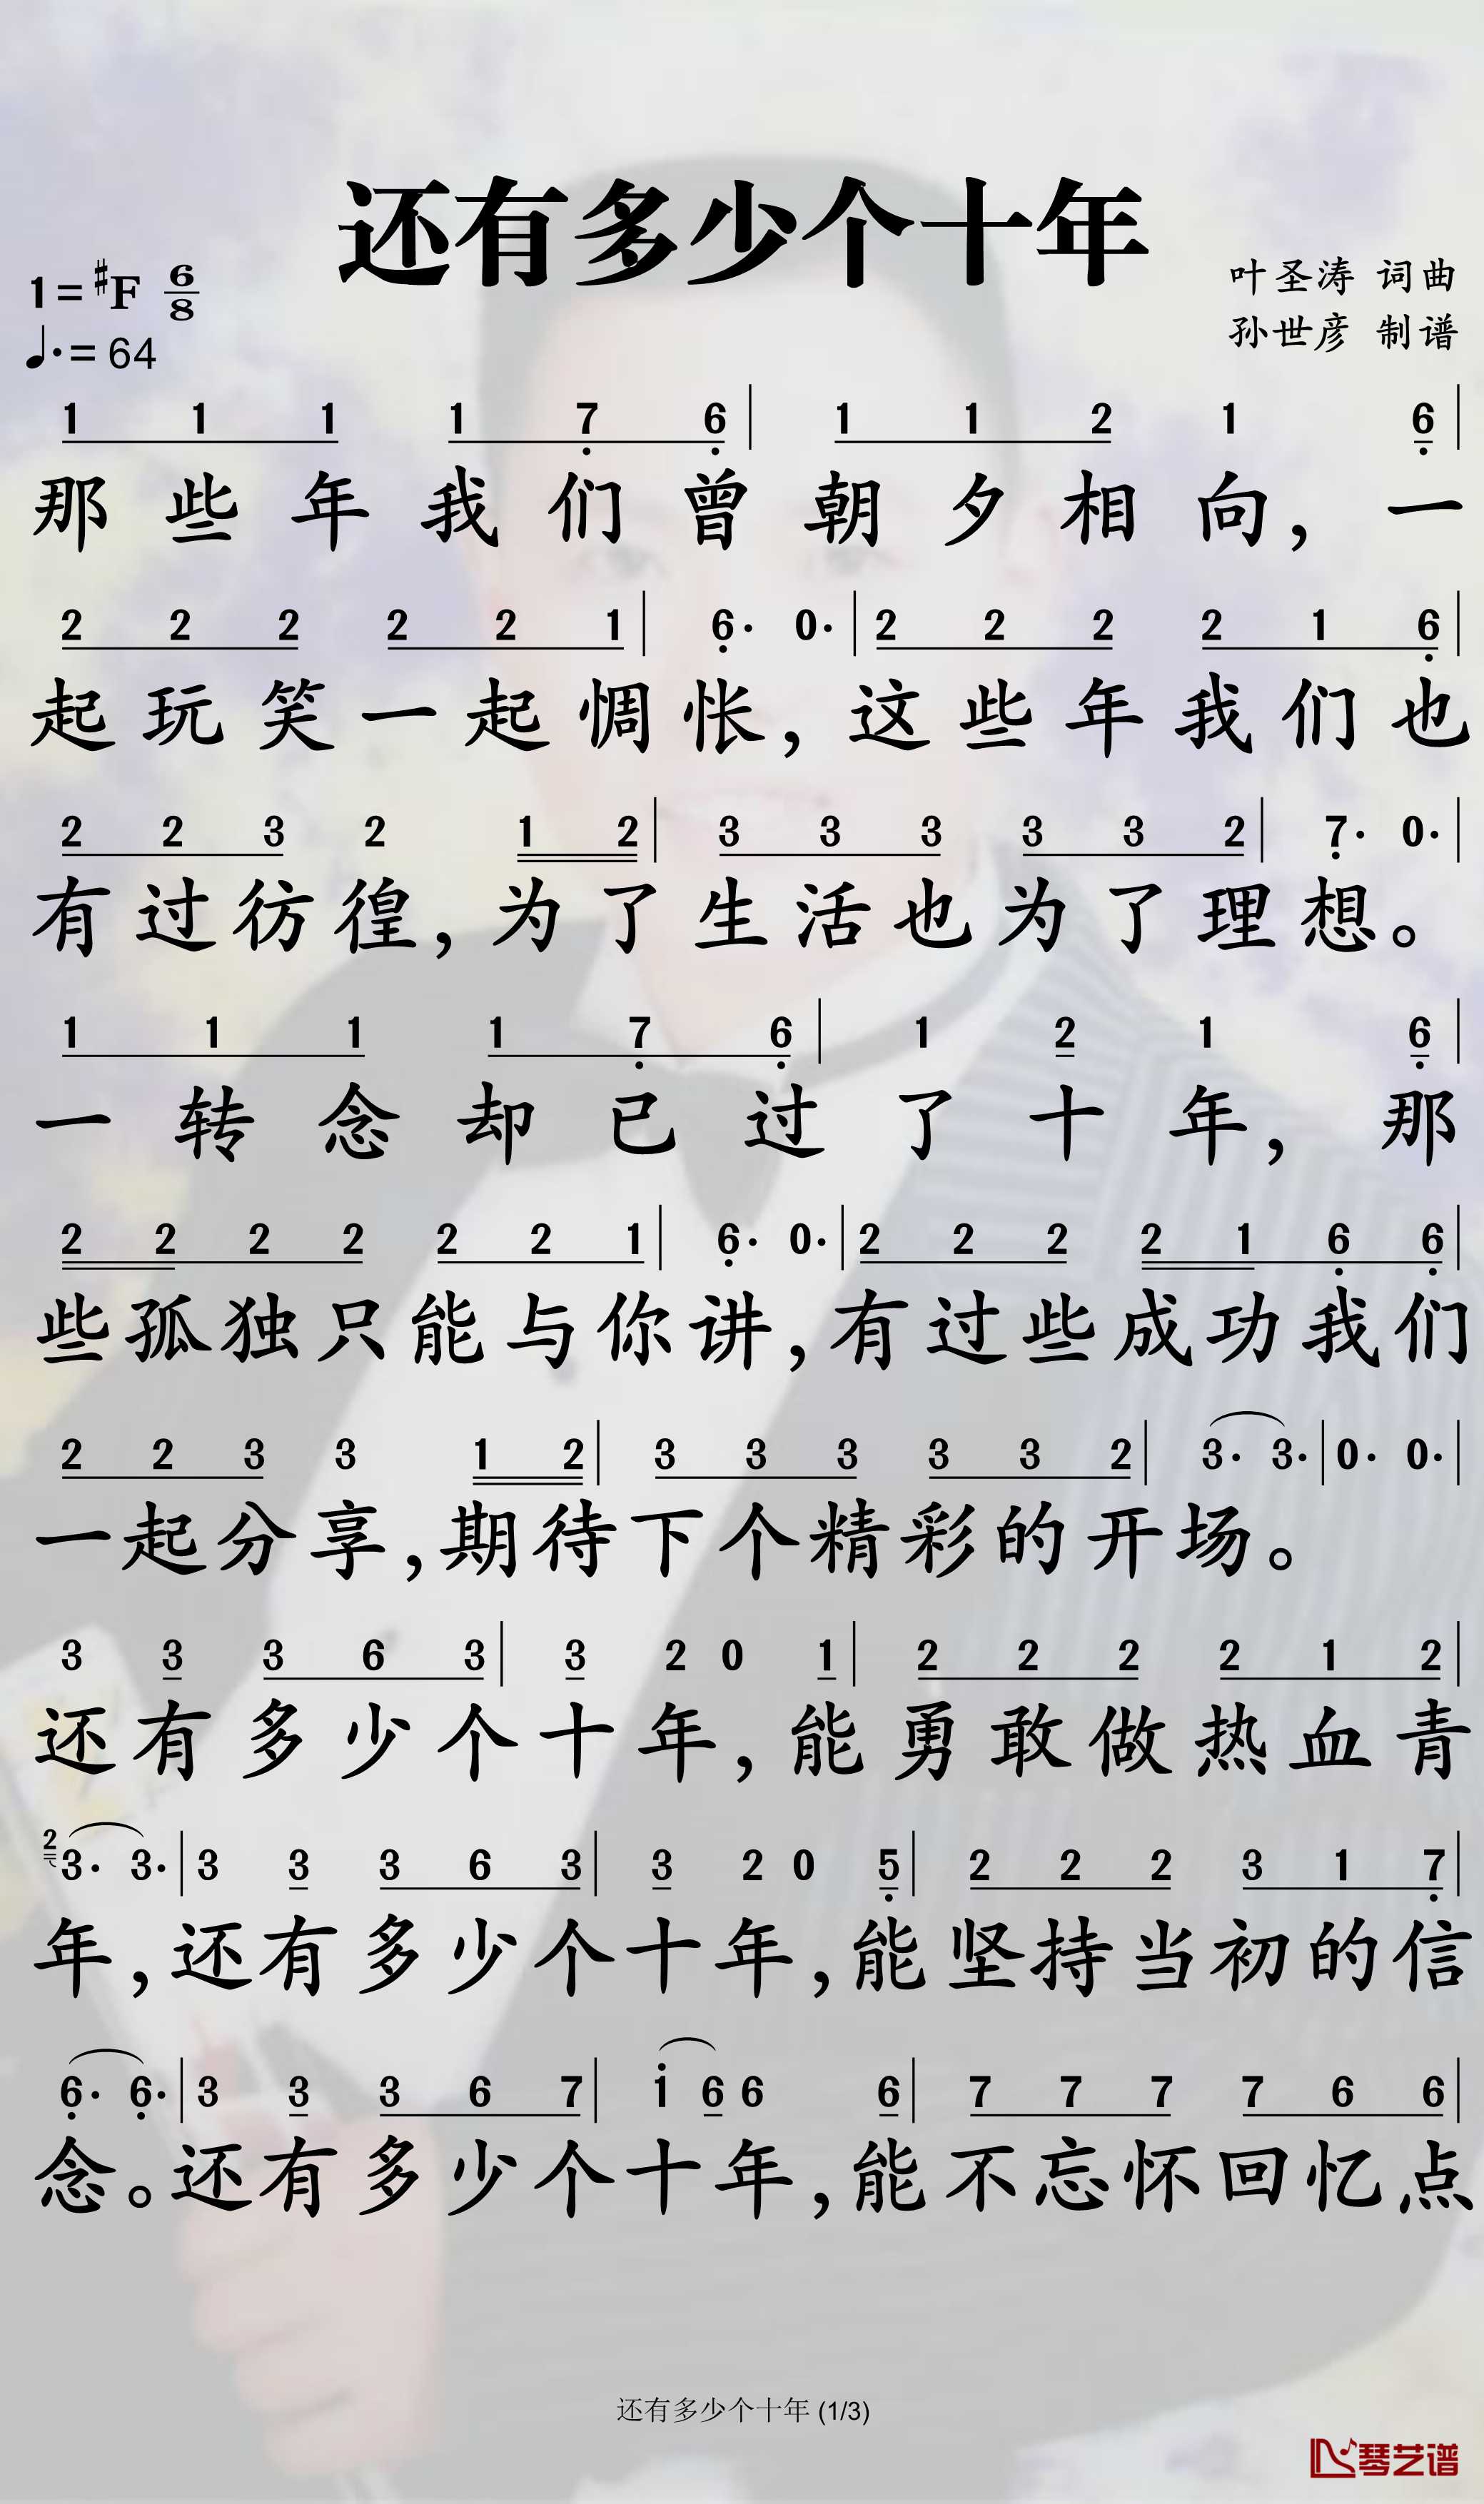 还有多少个十年
1=#F 6/8
叶圣涛 词曲
♩.=64
孙世彦 制谱
1 1 1 1 7 6 | 1 1 2 1 6 |
那些年我们曾朝夕相向，一
2 2 2 2 2 1 | 6· 0· | 2 2 2 2 1 6 |
起玩笑一起惆怅，这些年我们也
2 2 3 2 1 2 | 3 3 3 3 3 2 | 7· 0· |
有过彷徨，为了生活也为了理想。
1 1 1 1 7 6 | 1 2 1 6 |
一转念却已过了十年，那
2 2 2 2 2 2 1 | 6· 0· | 2 2 2 2 1 6 6 |
些孤独只能与你讲，有过些成功我们
2 2 3 3 1 2 | 3 3 3 3 3 2 | 3· 3· | 0· 0· |
一起分享，期待下个精彩的开场。
3 3 3 6 3 | 3 2 0 1 | 2 2 2 2 1 2 |
还有多少个十年，能勇敢做热血青
2 3· 3· | 3 3 3 6 3 | 3 2 0 5 | 2 2 2 3 1 7 |
年，还有多少个十年，能坚持当初的信
6· 6· | 3 3 3 6 7 | 1 6 6 6 | 7 7 7 7 6 6 |
念。还有多少个十年，能不忘怀回忆点
还有多少个十年 (1/3)
琴艺谱